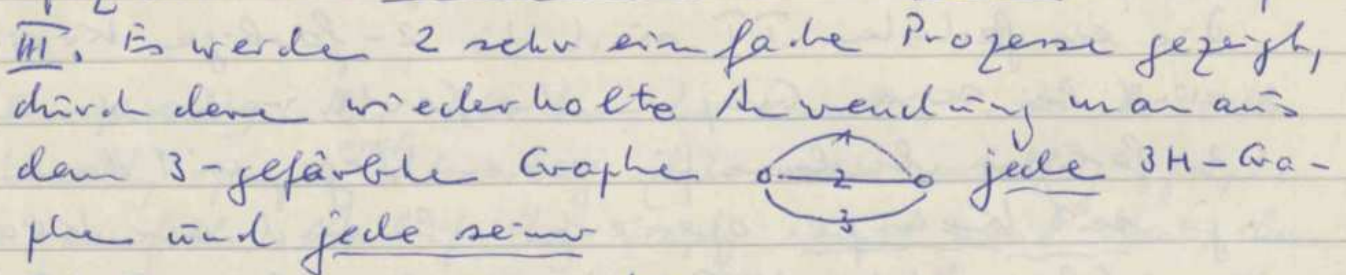 III. Es werden 2 sehr einfache Prozesse gezeigt,
durch deren wiederholte Anwendung man aus
dem 3-gefärbten Graphen 1 2 3 jeden 3H-Gra-
phen und jede seiner